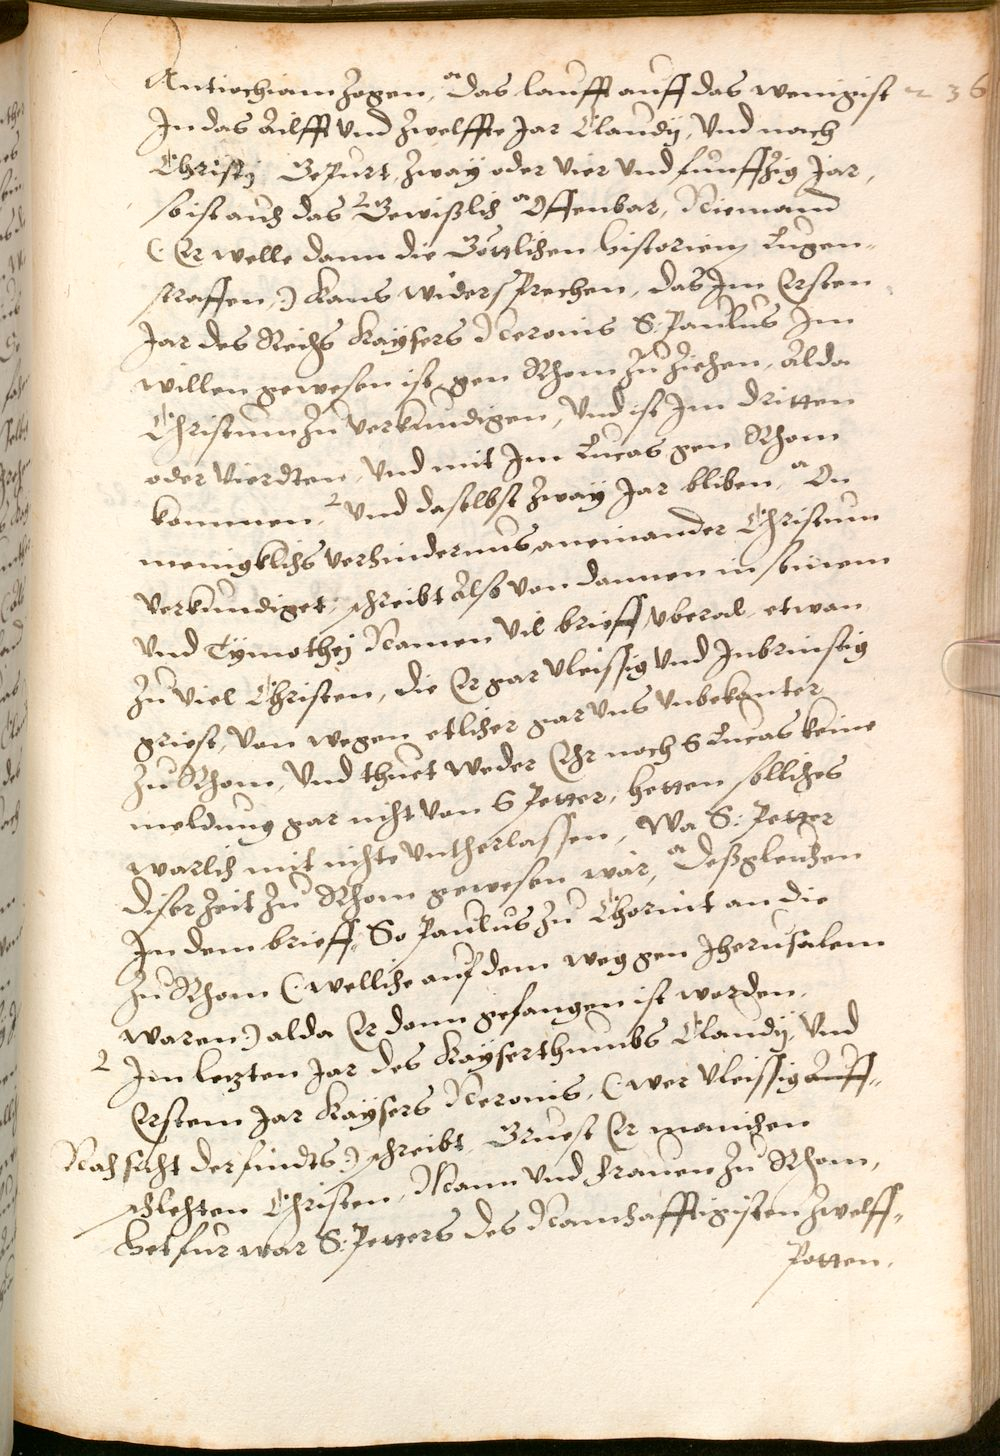 Antiochiam zogen, das laufft auff das wenigist 236
In das ailfft und zwelffte Jar Claudij, Und nach
Christj Gepurt, zway oder vier und funffzig Jar,
so ist auch das Gewißlich Offenbar, Niemand
(: Er welle dann die Göttlichen historien Lugen-
straffen,:) Kans widersprechen, das Im Ersten
Jar des Reichs Kaysers Neronis S: Paulus Im
willen gewesen ist gen Rhom zu ziehen, alda
Christum zu verkundigen, Und ist Im dritten
oder vierdten, Und mit Im Lucas gen Rhom
kommen, Und daselbst zway Jar bliben, On
menigklichs verhindernus aneinander Christum
verkundiget, schreibt also von dannen in seinem
und Tymothej Namen vil brieff uberal, etwan
zu viel Christen, die Er gar vleissig und Inbrinstig
griest, von wegen etlicher gar uns unbekanter
zu Rhom, Und thuet weder Ehr noch S Lucas keine
meldung gar nicht von S Petter, hetten solliches
warlich mit nichte untherlassen, Wa S: Petter
diser zeit zu Rhom gewesen wär, deßgleichen
In dem brieff, So Paulus zu Chorint an die
zu Rhom (: welliche auf dem weg gen Jherusalem
waren:) alda Er dann gefangen ist worden,
Im letzten Jar des Kayserthumbs Claudij, Und
Erstem Jar Kaysers Neronis, (: wer vleissig auff-
Nachsucht der findts:) schreibt, Gruest Er manichen
schlechten Christen, Mann und frauen zu Rhom,
het fur war S: Petters des Namhafftigisten zwelff-
Potten.